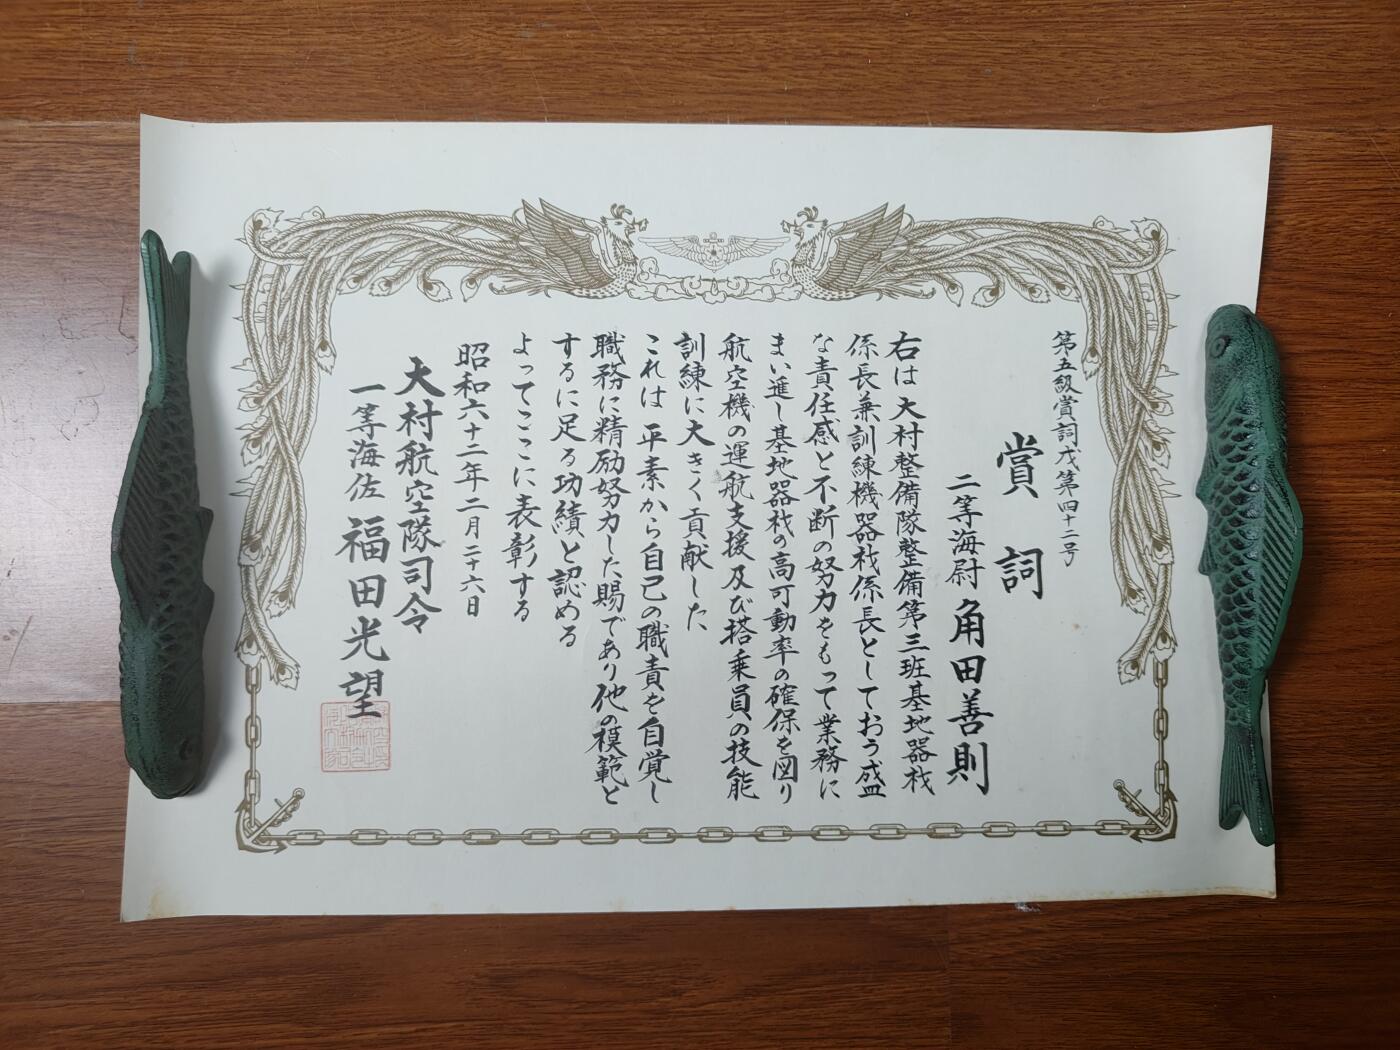 第五級賞詞戊第四十二号
賞詞
二等海尉 角田善則
右は大村整備隊整備第三班基地器材
係長兼訓練機器材係長としておう盛
な責任感と不断の努力をもって業務に
まい進し基地器材の高可動率の確保を図り
航空機の運航支援及び搭乗員の技能
訓練に大きく貢献した
これは平素から自己の職責を自覚し
職務に精励努力した賜であり他の模範と
するに足る功績と認める
よってここに表彰する
昭和六十二年二月二十六日
大村航空隊司令
一等海佐 福田光望